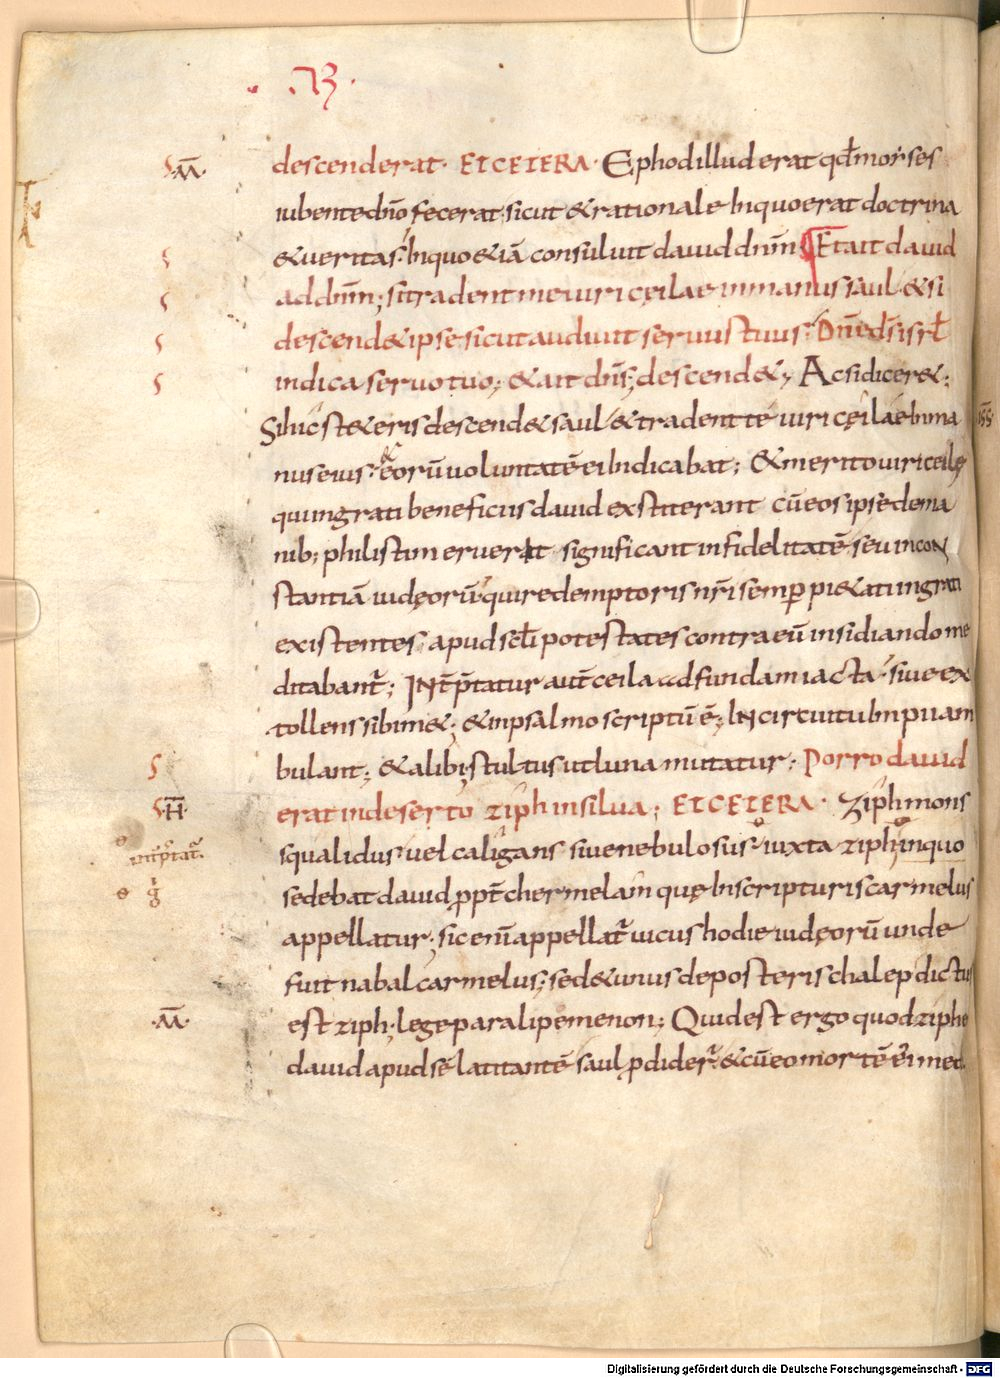 descenderat· ETCETERA· Ephod illud erat qđ morses
iubente dn̄o fecerat· sicut & rationale In quo erat doctrina
& veritas· In quo & iā consuluit dauid dnm̄; Et ait dauid
ad dnm̄; si tradent me uiri cęilae in manus saul· & si
descend& ipse sicut audiuit seruus tuus· Dn̄e ds̄ isrł
indica seruo tuo; & ait dn̄s; descend&; Ac si dicer&;
Si hic st& eris descend& saul· & tradent te uiri cęilae In ma
nus eius· & eorū uoluntatē ei Indicabat; & merito uiri ceilę
qui ingrati beneficiis dauid exstiterant cū eos ipse de ma
nib; philistim eruerat significant infidelitatē seu incon
stantiā iudęorū· qui redemptoris nr̄i semper pi&ati ingrati
existentes· apud scłi potestates contra eū insidiando me
ditabantr̄; INt̄p̄tatur aut̄ ceila ad fundam iacta· siue ex
tollens sibim&; & in psalmo scriptū ē; IN circuitu Impii am
bulant; & alibi; stultus ut luna mutatur; Porro dauid
erat in deserto ziph in silua; ETCETERA· Ziph mons
squalidus· uel caligans siue nebulosus· iuxta ziph in quo
sedebat dauid ꝓpt̄ chermelam quę In scripturis carmelus
appellatur; sic enī appellatr̄ uicus hodie iudęorū unde
fuit nabal carmelus; sed & unus de posteris chalep dictus
est ziph· lege paralipemenon; Quid est ergo quod ziphe
dauid apud sē latitantē saul ꝓdider̄· & cū eo mortē
H̄
int̄p̄tat̄